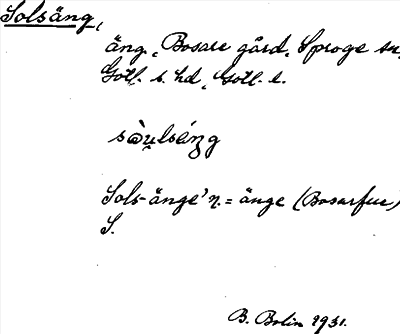 Solsäng,
äng, Bosare gård, Sproge sn,
Gotl. s. hd, Gotl. l.
sə̀u̯lséŋg
Sols-änge' η. = änge (Bosarfue)
S.
B. Bolin 1931.